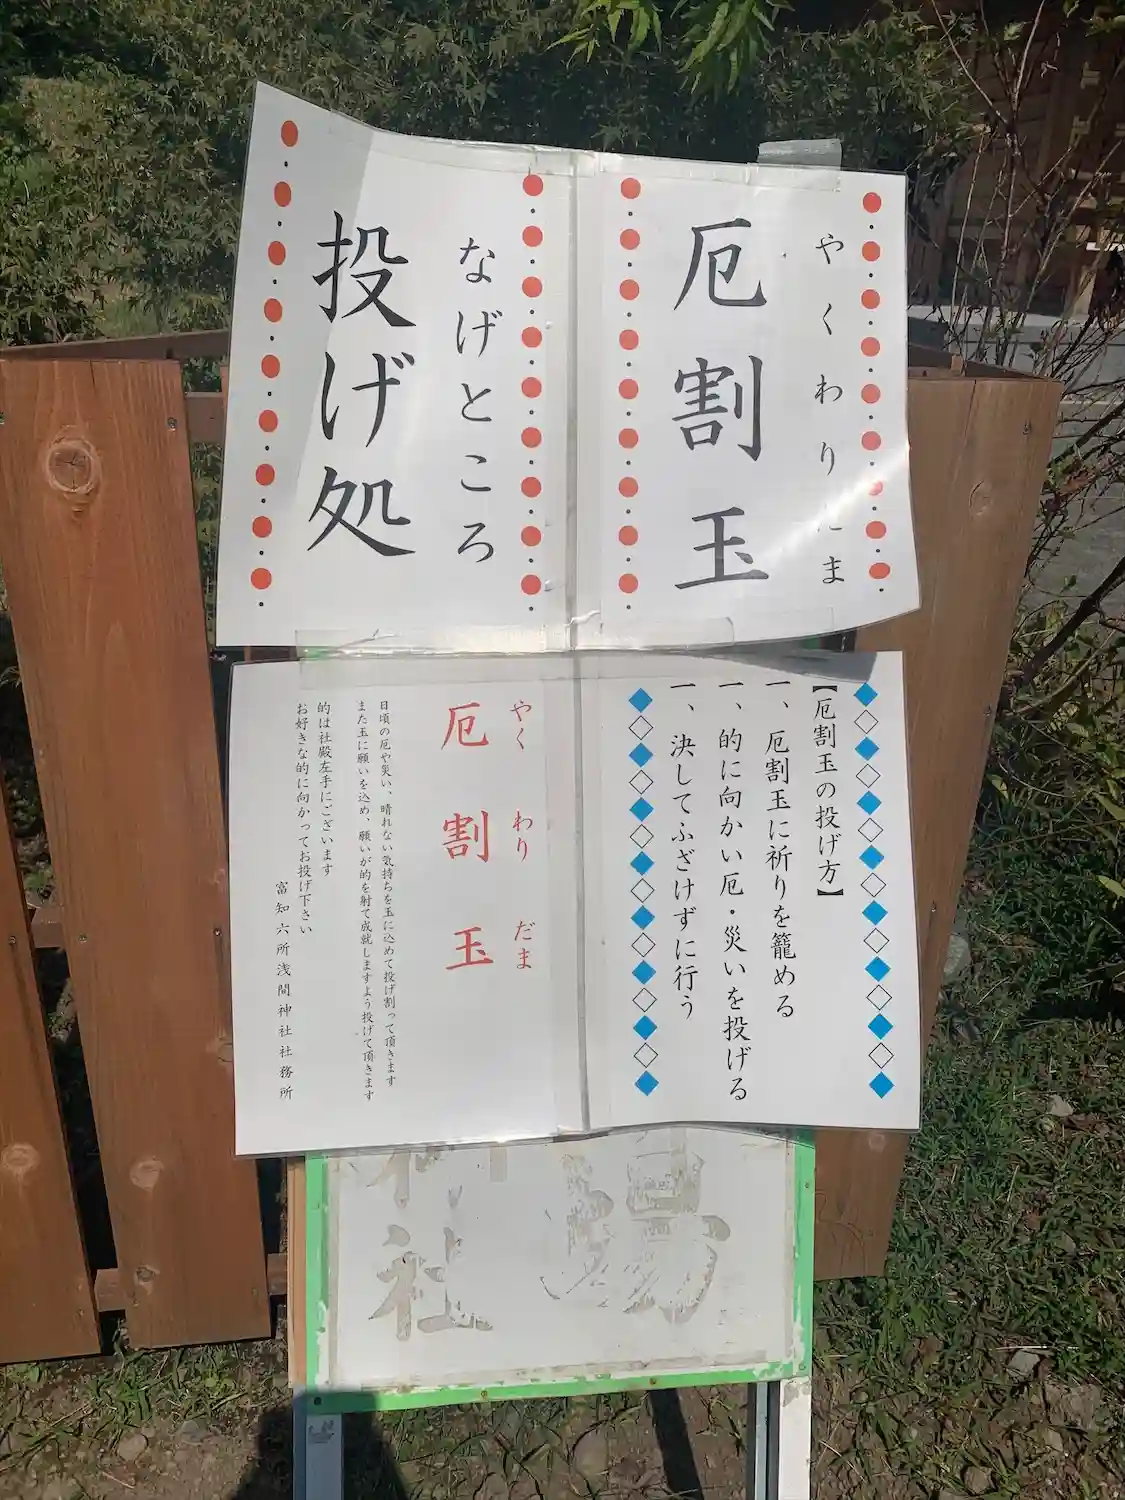 やくわりだま
厄割玉
なげところ
投げ処
【厄割玉の投げ方】
一、厄割玉に祈りを籠める
一、的に向かい厄・災いを投げる
一、決してふざけずに行う
やく わり だま
厄割玉
日頃の厄や災い、晴れない気持ちを玉に込めて投げ割って頂きます
また玉に願いを込め、願いが的を射て成就しますよう投げて頂きます
的は社殿左手にございます
お好きな的に向かってお投げ下さい
富知六所浅間神社社務所
社